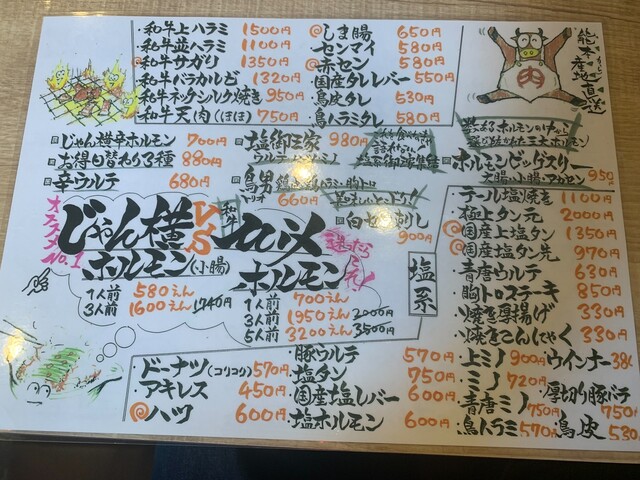 ・和牛上ハラミ 1500円
・和牛並ハラミ 1100円
@和牛サガリ 1350円
・和牛バラカルビ 1320円
・和牛ネックシルク焼き 950円
・和牛天肉(ほほ) 750円
@しま腸 650円
センマイ 580円
@赤セン 580円
国産タレレバー 550円
・鳥皮タレ 530円
・鳥ハラミタレ 580円
熊本産地直送
肉
じゃん横辛ホルモン 700円
お得日替わり3種 880円
辛ウルテ 680円
塩御三家 980円
鳥男トリオ 660円
白センマイ刺し 900円
ホルモンビッグスリー 950円
大腸・小腸・アカセン
オススメNo.1
じゃん横ホルモン(小腸)
1人前 580えん
3人前 1600えん 1740円
VS
和牛
ホルモン
1人前 700えん
3人前 1950えん 2000円
5人前 3200えん 3500円
迷ったらこれ!
塩系
・テール塩焼き 1100円
・極上タン元 2000円
@国産上塩タン 1350円
@国産塩タン先 970円
・青唐ウルテ 630円
・胸トロステーキ 850円
・焼き厚揚げ 330円
・焼きこんにゃく 330円
・上ミノ 900円
・ミノ 720円
・青唐ミノ 750円
・鳥ハラミ 570円
ウインナー 38
厚切り豚バラ 750
鳥皮 530
・ドーナツ(コリコリ) 570円
・アキレス 450円
@ハツ 600円
・豚ウルテ 570円
・塩タン 750円
・国産塩レバー 600円
・塩ホルモン 600円